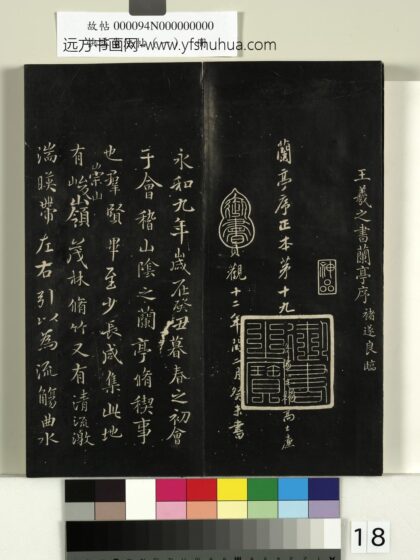 故帖 000094N000000000
远方书画网-www.yfshuhua.com
王羲之書蘭亭序 褚遂良臨
神品
蘭亭序正本第十九
御書
貞觀十二年閏二月癸未書
御書之寶
永和九年歲在癸丑暮春之初會
于會稽山陰之蘭亭脩稧事
也羣賢畢至少長咸集此地
有崇山
峻嶺茂林脩竹又有清流激
湍暎帶左右引以為流觴曲水
18